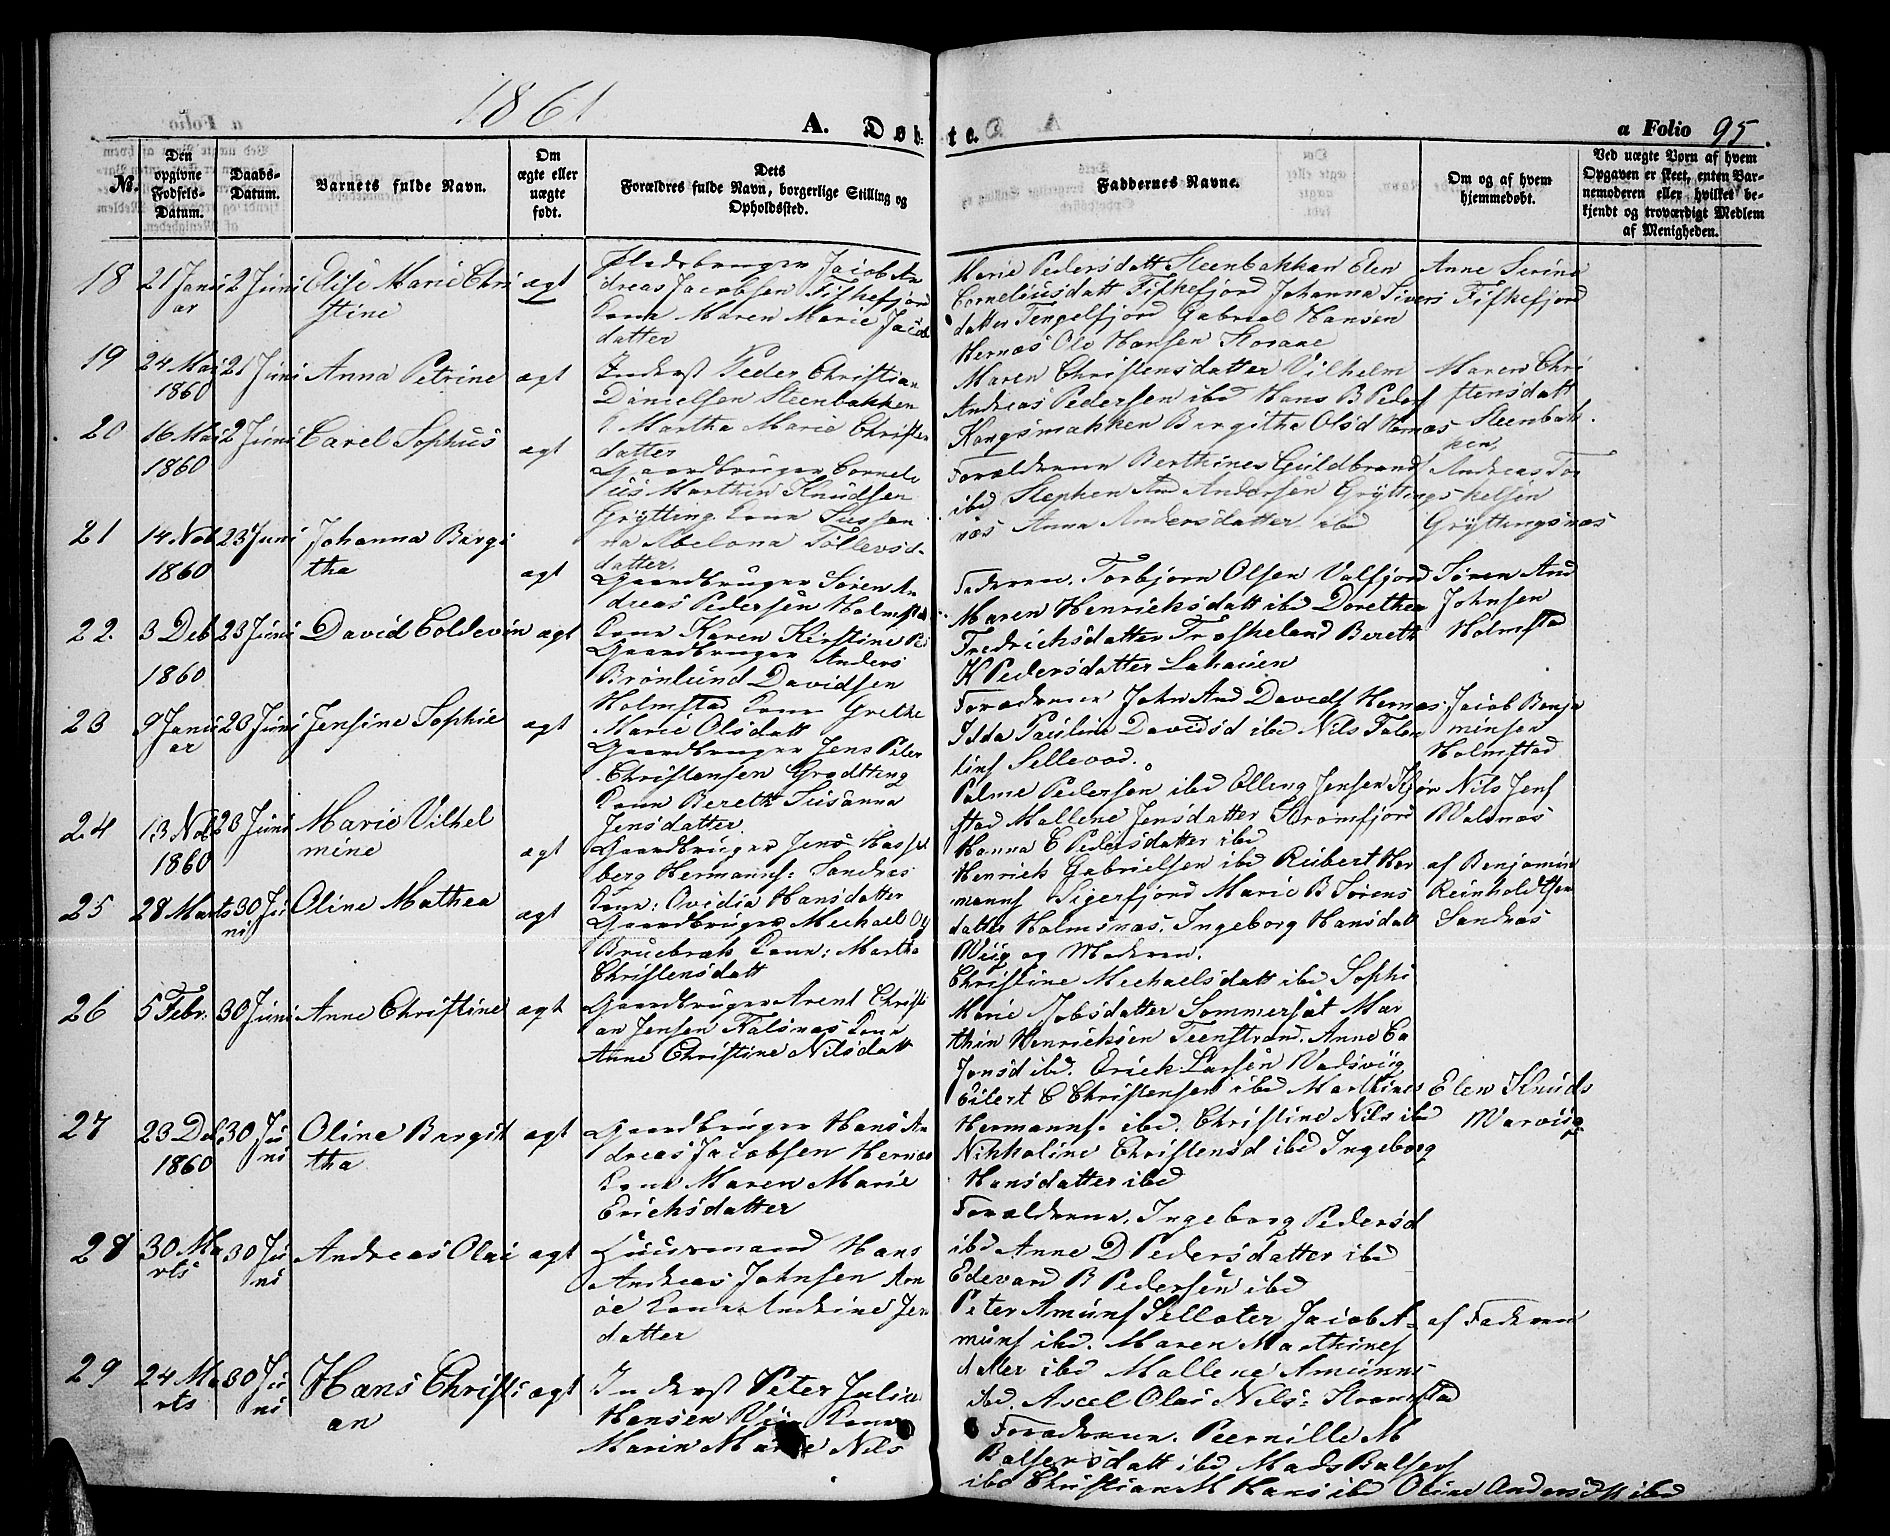 1861
A. Døb-
te.
a Folio 95.
No.
Den opgivne Fødsels-Datum.
Daabs-Datum.
Barnets fulde Navn.
Om ægte eller uægte født.
Dets Forældres fulde Navn, borgerlige Stilling og Opholdssted.
Faddernes Navne.
Om og af hvem hjemmedøbt.
Ved uægte Børn af hvem Opgaven er skeet, enten Bar-nemoderen eller hvilket be-kjendt og troværdigt Medlem af Menigheden.
18
21 Janu
ar
2 Juni
Elise Marie Chri
stine
ægt
Pladsbruger Jacob An
dreas Jacobsen Fiskefjord
Kone Maren Marie Jacob
datter
Marie Pedersdatt Steenbakken Elen
Corneliusdatt Fiskefjord Johanna Sivers
datter Tengelfjord Gabriel Hansen
Hernæs Ole Hansen Storane
Anne Serine
Fiskefjord
19
24 Mai
1860
21 Juni
Anna Petrine
ægt
Inderst Peder Christian
Danielsen Steenbakken
Martha Marie Christen
datter
Maren Christensdatter Vilhelm
Andreas Pedersen ibd Hans B Peders
Kongsmakken Birgitha Olsd Hernæs
Maren Chri
stensdatt
Steenbak
ken,
20
16 Mai
1860
2 Juni
Carel Sophus
ægt
Gaardbruger Corneli
us Marthin Knudsen
Grytting Kone Sussen
na Abelona Tollevsd
datter,
Forældrene Berthines Guldbrands
ibd Stephen And Andersen Gryttings
næs Anna Andersdatter ibd
Andreas Tor
kelsen
Gryttingsnæs
21
14 Nob
1860
23 Juni
Johanna Bergi
tha
ægt
Gaardbruger Søren An
dreas Pedersen Holmstad
Kone Karen Kirstine Pe
Faderen. Torbjørn Olsen Valfjord
Maren Henriksdatt ibd Dorethea
Fredrichsdatter Træskeland Bereth
K Pedersdatter Lahauen
Søren And
Johnsen
Holmstad
22.
3 Deb
1860
23 Juni
David Coldevin
ægt
Gaardbruger Anders
Brønlund Davidsen
Holmstad Kone Grethe
Marie Olsdatt
Forædrener John And Davids Hernæs
Ilda Pauline Davidsd ibd Nils Falen
tins Sellevod.
Jacob Benja
minsen
Holmstad
23
9 Janu
ar
23 Juni
Jensine Sophie
ægt
Gaardbruger Jens Peter
Christensen Grødtting
Kone Bereth Susanna
Jensdatter
Palme Pedersen ibd Elling Jensen Kjør
stad Mallene Jensdatter Strømfjord
Hanna C Pedersdatter ibd
Nils Jens
Walsnæs
24
13 Nob
1860
23 Juni
Marie Vilhel
mine
ægt
Gaardbruger Jens Hassel
berg Hermanns: Sandnæs
Kone: Ovidia Hansdatter
Henrich Gabrielsen ibd Reubert Her
manns Sigerfjord Marie B Sørens
datter Holmsnæs, Ingeborg Hansdatt
Wiig og Moderen.
af Benjamin
Reinholdtsen
Sandnæs
25
28 Marts
30 Ju
ni
Oline Mathea
ægt
Gaardbruger Michael Ols
Bruebræk Kone: Martha
Christensdatt
Christine Michaelsdatt ibd Sophi
Marie Jobsdatter Sommersæt Mar
thin Henricksen Teenstrand. Anne Ca
Jensd ibd. Erich Larsen Vadsviig
26
5 Febr:
30 Juni
Anne Christine
ægt
Gaardbruger Arent Christi
an Jensen Falsnæs Kone
Anne Christine Nilsdatt
Eilert C Christensen ibd Marthines
Hermanns. ibd. Christine Nils ibd
Nikkoline Christensd ibd Ingeborg
Hansdatter ibd
Elen Knuds
Warviig
27
23 Deb
1860
30 Ju
ni
Oline Bergit
tha
ægt
Gaardbruger Hans An
dreas Jacobsen Hernæs
Kone Maren Marie
Erichsdatter
Forældrene, Ingeborg Pedersd
ibd Anne D Pedersdatter ibd
Edevard B Pedersen ibd
28
30 Ma
rts
30 Ju
ni
Andreas Olai
ægt
Huusmand Hans
Andreas Johnsen Arn
øe Kone Andrine Jen
datter
Peter Amuns Selloter Jacob A-
muns ibd. Maren Mathines
datter ibd Mallene Amunns
ibd. Axcel Olai Nils: Strømstad
af Faderen
29
24 Ma
rts
30 Ju
ni
Hans Christi
an
ægt
Inderst Peter Julius
Hansen Kone
Marin Marie Nils
Forædrene. Peernille M
Balsersdatt ibd Mads Balsers
ibd Christian M Hans ibd Oline Andersdtt ibd